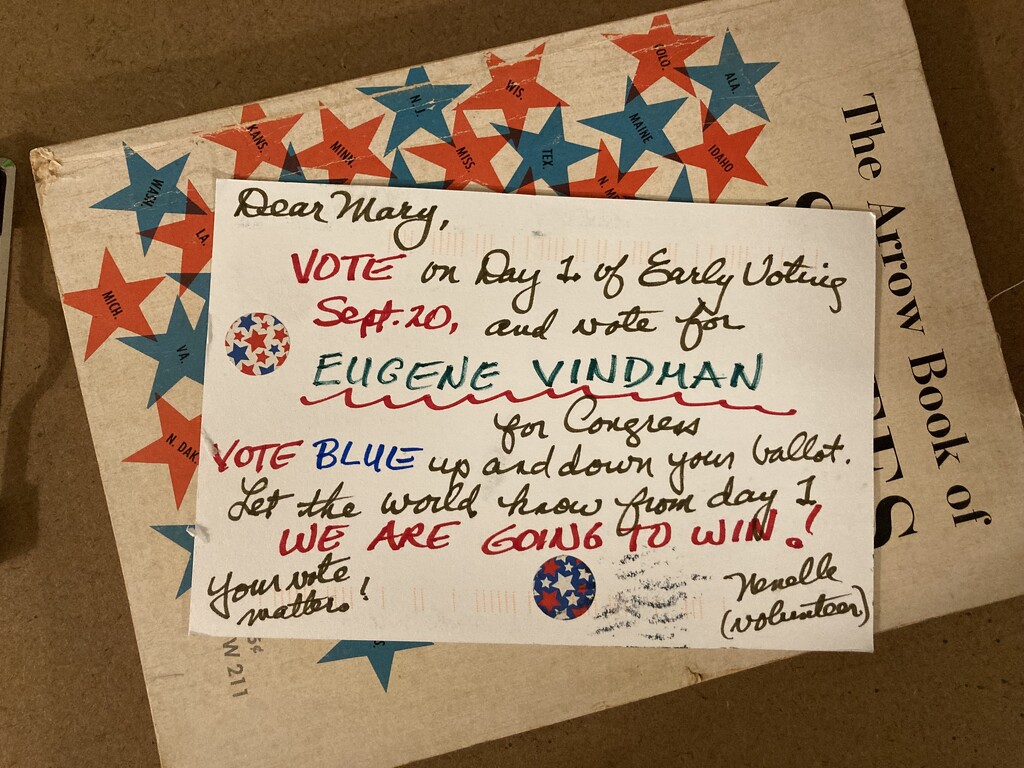 Dear Mary,
VOTE on Day 1 of Early Voting
Sept. 20, and vote for
EUGENE VINDMAN
for Congress
VOTE BLUE up and down your ballot.
Let the world know from day 1
WE ARE GOING TO WIN!
Your vote
matters!
Nenelle
(volunteer)
The Arrow Book of
COLO.
ALA.
WIS.
N. J.
MAINE
KANS.
MINN.
MISS.
TEX.
IDAHO
WASH.
LA.
MICH.
VA.
N. DAK.
5¢
W 211